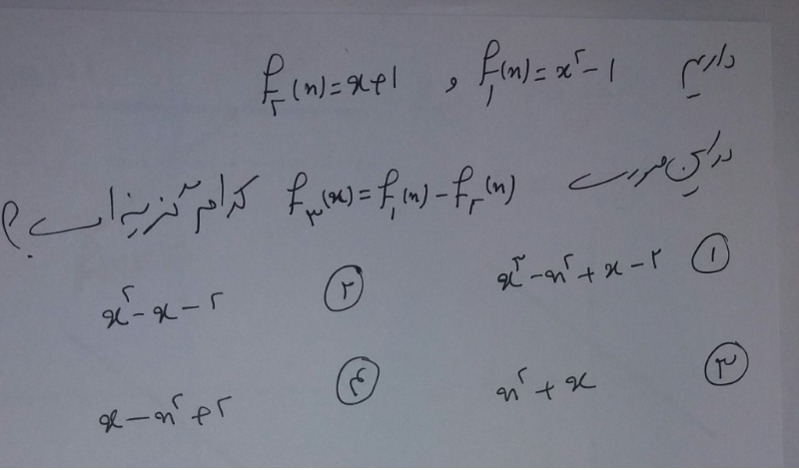 داریم f₁(x) = x² - 1 , f₂(x) = x + 1
در این صورت f₃(x) = f₁(x) - f₂(x) کدام گزینه است؟
① x³ - x² + x - ۲ ② x² - x - ۲
③ x² + x ④ x - x² + ۲